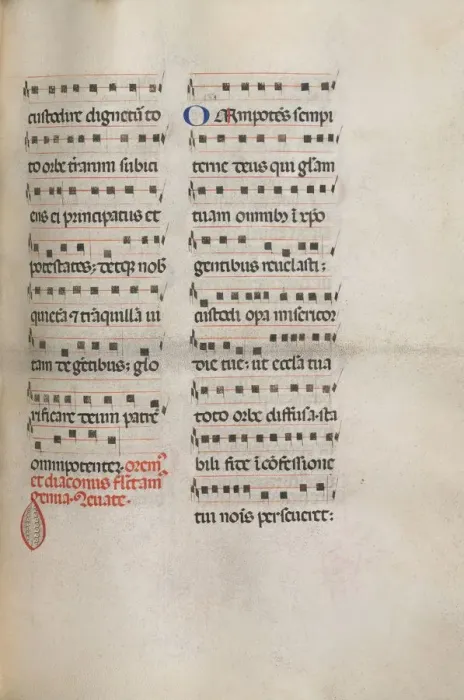 custodire dignetũ to
to orbe t̃rarum subici
ens ei principatus et
potestates; detq̃ nob̃
quietã ⁊ tr̃aquillã ui
tam degẽtibus; glo
rificare deum patrẽ
omnipotentẽ. orem̃
et diaconus flectam
genua. Leuate.
Om̃ipotẽs sempi
terne deus qui gl̃am
tuam omnibꝫ ĩ xp̃o
gentibus reuelasti:
custodi opa misericor
die tue: ut eccl̃a tua
toto orbe diffusa. sta
bili fide ĩ cõfessione
tui nõis perseueret: